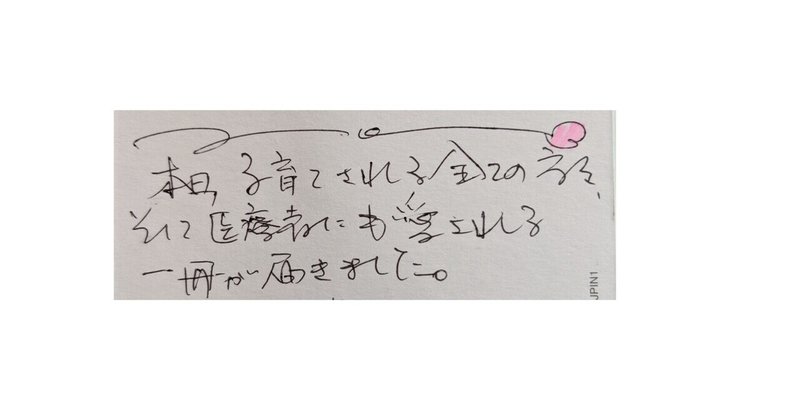 本日、子育てされる全ての方々、
そして医療者にも愛される
一冊が届きました。
JPIN1